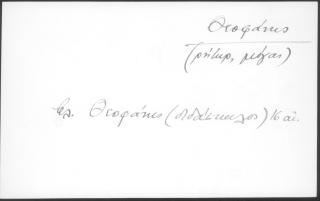 Θεοφάνης
(ρήτωρ, μέγας)
βλ. Θεοφάνης (διδάσκαλος) 16 αι.